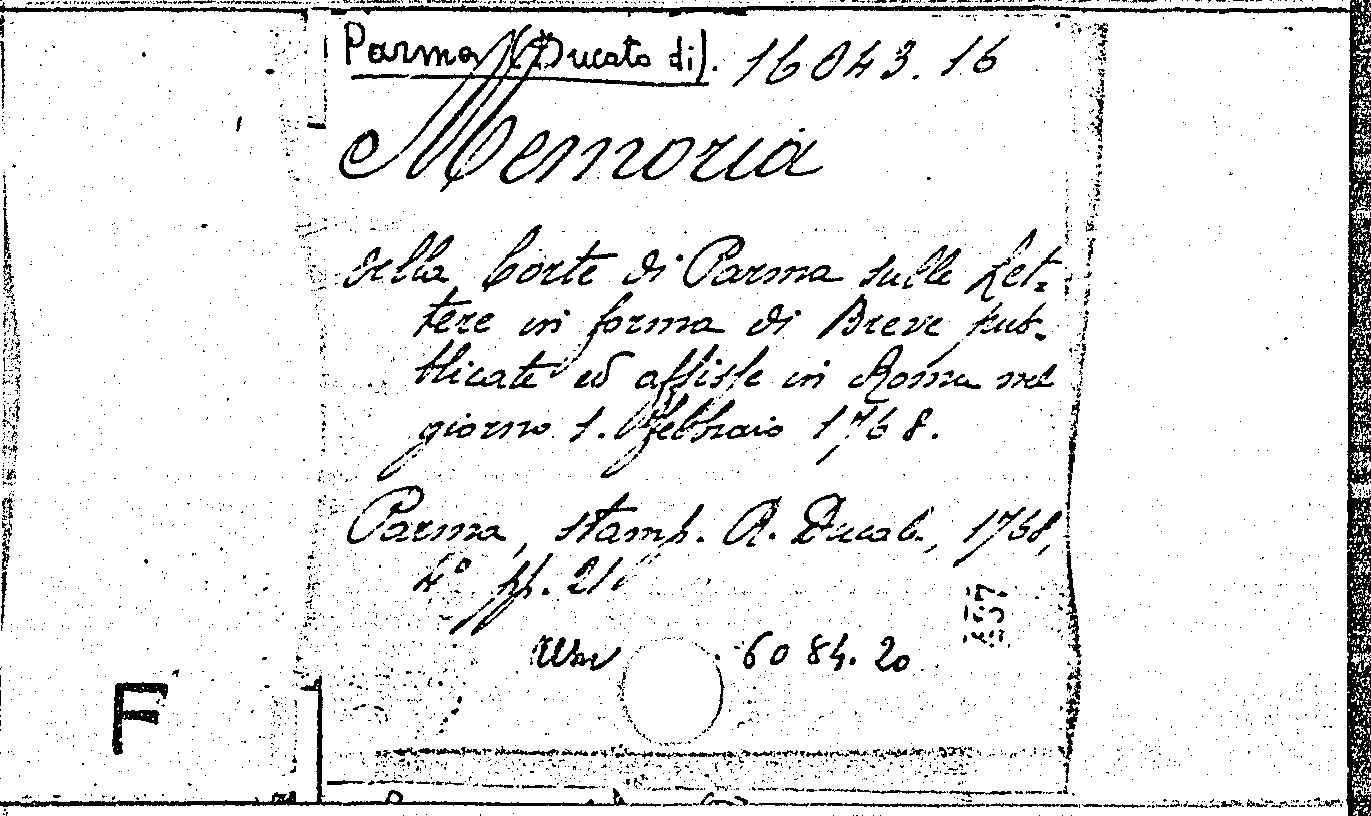 Parma (Ducato di). 16043.16
Memoria
della Corte di Parma sulle Let=
tere in forma di Breve pub-
blicate ed affisse in Roma nel
giorno 1. Febbraio 1768.
Parma, stamp. R. Ducal., 1768,
4° pp. 21.
6084.20
F